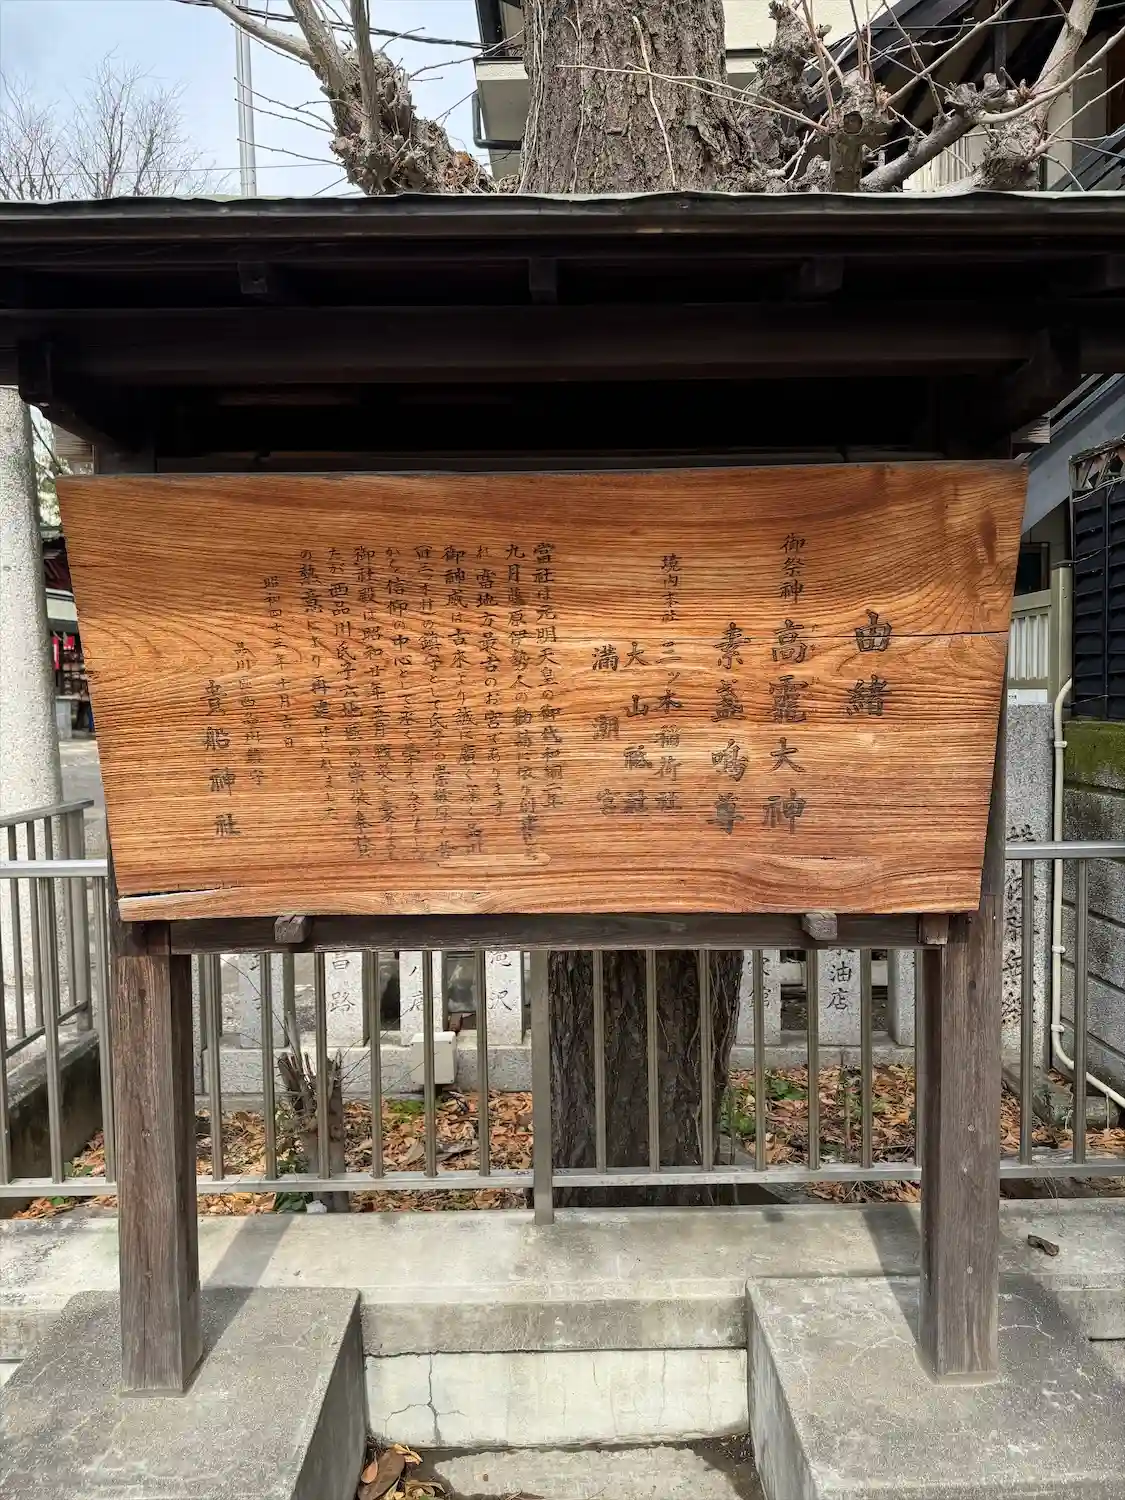 由緒
御祭神 高龗大神
素盞嗚尊
境内末社 三ツ木稲荷社
大山祇社
満潮宮
當社は元明天皇の御代和銅二年
九月藤原伊勢人の勧請に依り創建さ
れ當地方最古のお宮であります
御神威は古来より誠に廣く深く品川
領三ヶ村の鎮守として氏子の崇敬厚く昔
から信仰の中心として永く栄えて
御社殿は昭和廿年五月戦災で
たが西品川氏子六地区の崇敬者
の熱意により再建せられました
昭和四十三年十月吉日
品川区西品川鎮守
貴船神社
昌路
滝沢
油店